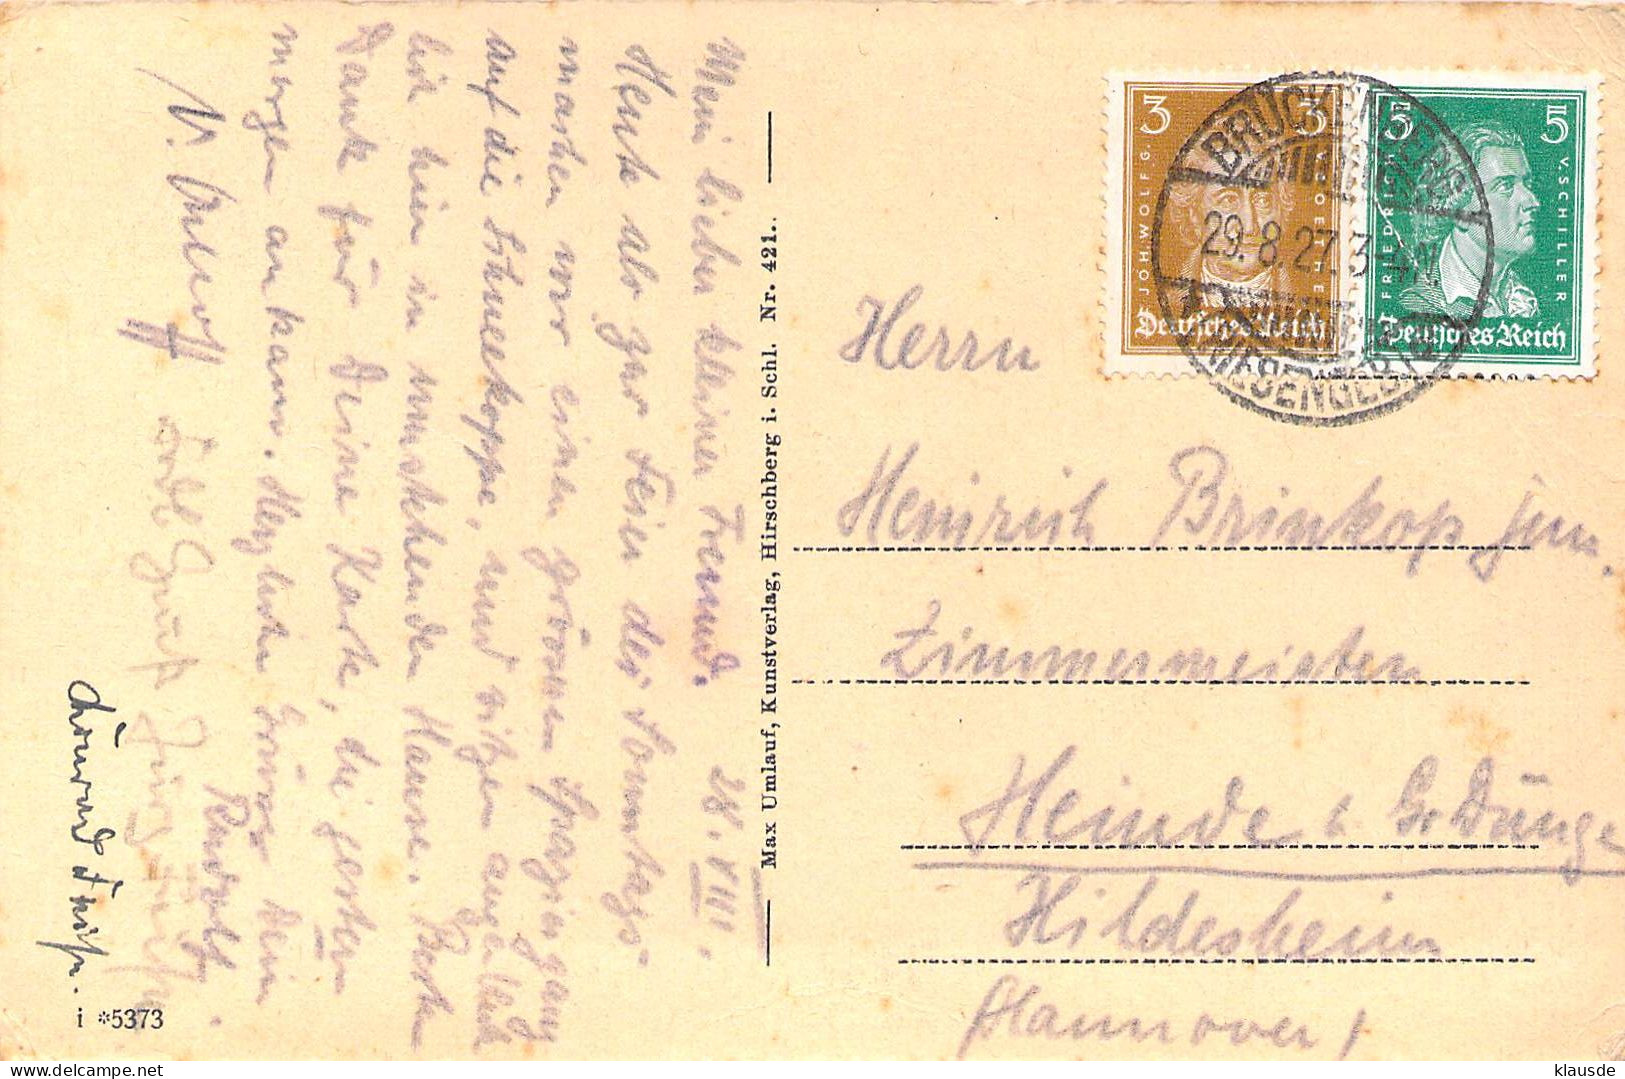 Mein lieber kleiner Freund. 28.VIII.
Heute als zur Feier des Sonntags
machen wir einen grossen Spaziergang
auf die Schneekoppe, und sitzen augenblick
lich hier in umstehenden Hause. Besten
Dank für Deine Karte, die gestern
morgen ankam. Herzliche Grüsse Dein
Rudolf.
Gruß
Max Umlauf, Kunstverlag, Hirschberg i. Schl. Nr. 421.
i *5373
3 3
JOH. WOLFG. V. GOETHE
Deutsches Reich
5 5
FRIEDRICH V. SCHILLER
Deutsches Reich
BRÜCKENBERG
29.8.27. 3-4 N
RIESENGEB.
Herrn
Heinrich Brinkop jun.
Zimmermeister
Heinde b Gr Dünge
Hildesheim
Hannover
klausde